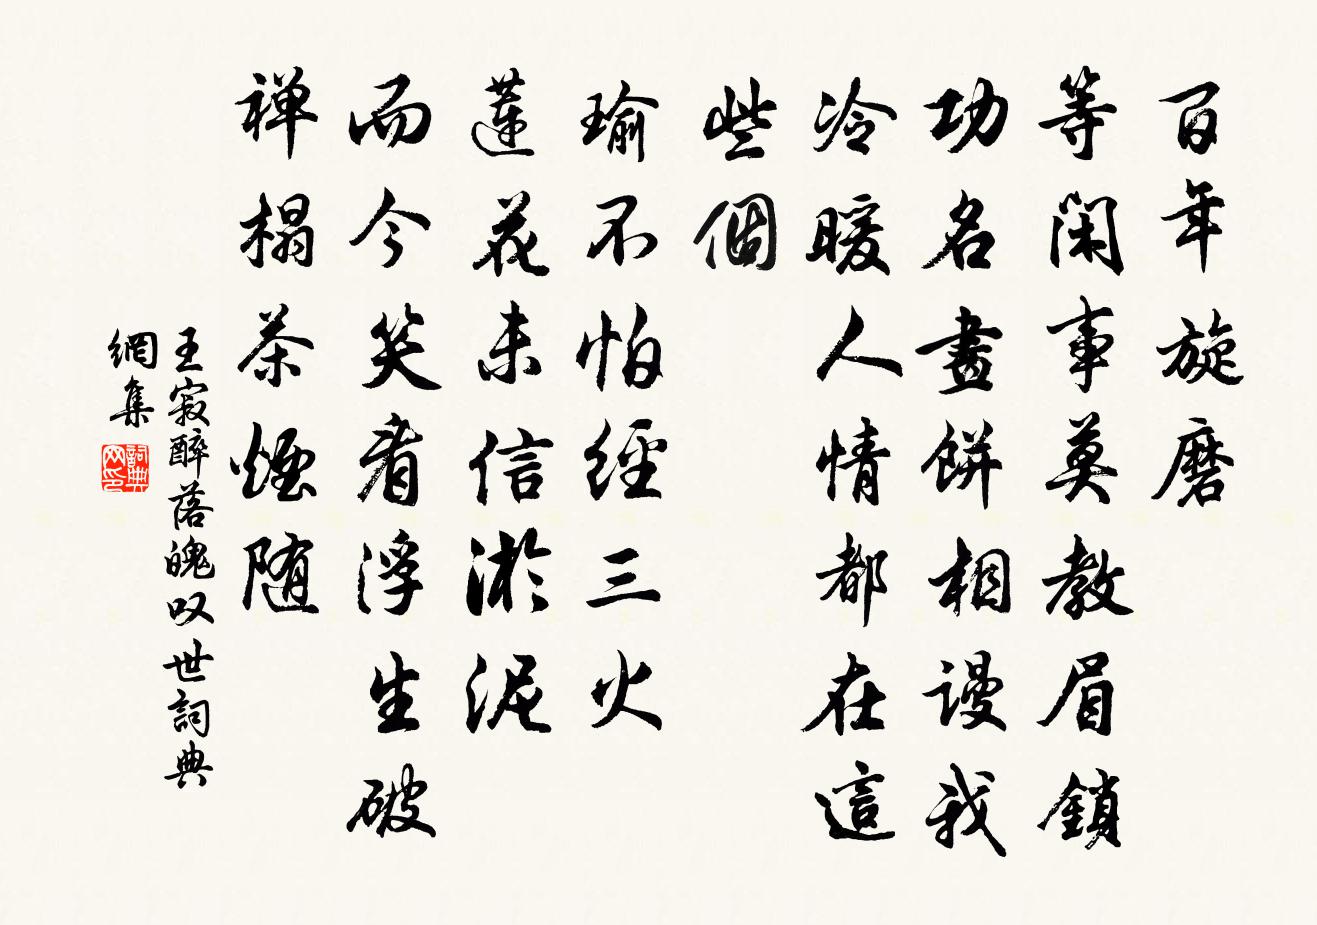 百年旋磨
等闲事莫教眉鎖
功名畫餅相謾我
冷暖人情都在這
些個
瑜不怕經三火
蓮花未信淤泥
而今笑看浮生破
禅榻茶煙随
王寂醉落魄叹世詞典
網集
詞典网印